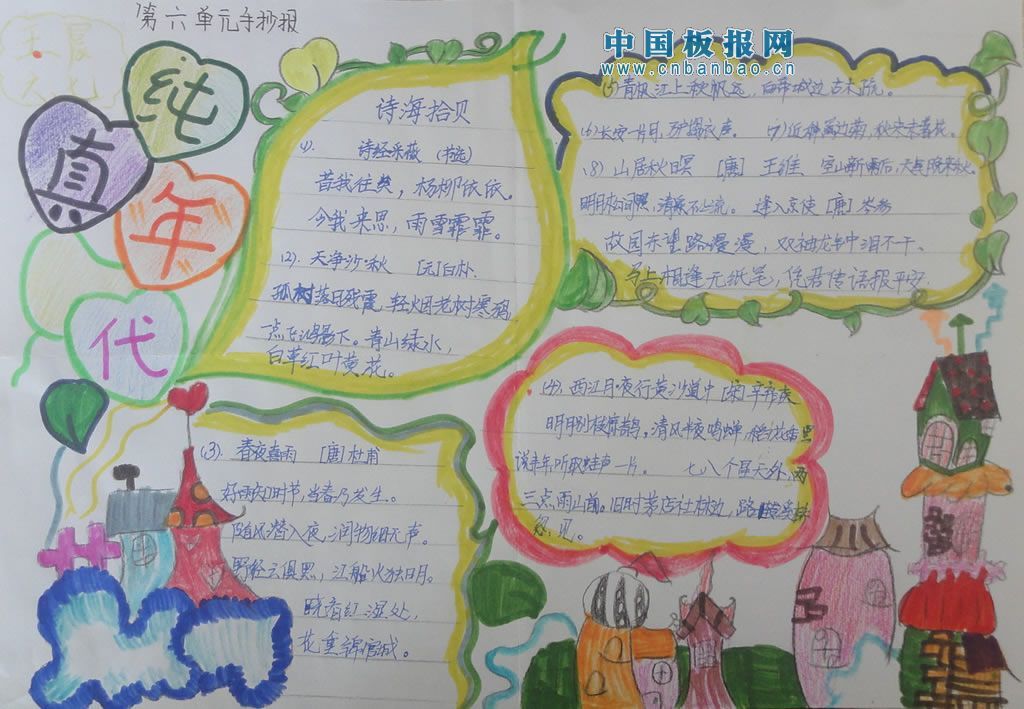 第六单元手抄报
中国板报网
www.cnbanbao.cn
纯
真
年
代
诗海拾贝
(1). 诗经采薇 (节选)
昔我往矣，杨柳依依。
今我来思，雨雪霏霏。
(2). 天净沙·秋 [元]白朴.
孤村落日残霞，轻烟老树寒鸦，
一点飞鸿影下。青山绿水，
白草红叶黄花。
(3). 春夜喜雨 [唐]杜甫
好雨知时节，当春乃发生。
随风潜入夜，润物细无声。
野径云俱黑，江船火独明。
晓看红湿处，
花重锦官城。
(4). 西江月·夜行黄沙道中 [宋]辛弃疾
明月别枝惊鹊，清风半夜鸣蝉，稻花香里
说丰年，听取蛙声一片。 七八个星天外，两
三点雨山前。旧时茅店社林边，路转溪桥
忽见。
(5)青枫江上秋帆远，白帝城边古木疏。
(6)长安一片月，万户捣衣声。 (7)近种篱边菊，秋来未著花。
(8) 山居秋日暝 [唐] 王维 空山新雨后，天气晚来秋。
明月松间照，清泉石上流。 逢入京使 [唐] 岑参
故园东望路漫漫，双袖龙钟泪不干。
马上相逢无纸笔，凭君传语报平安.